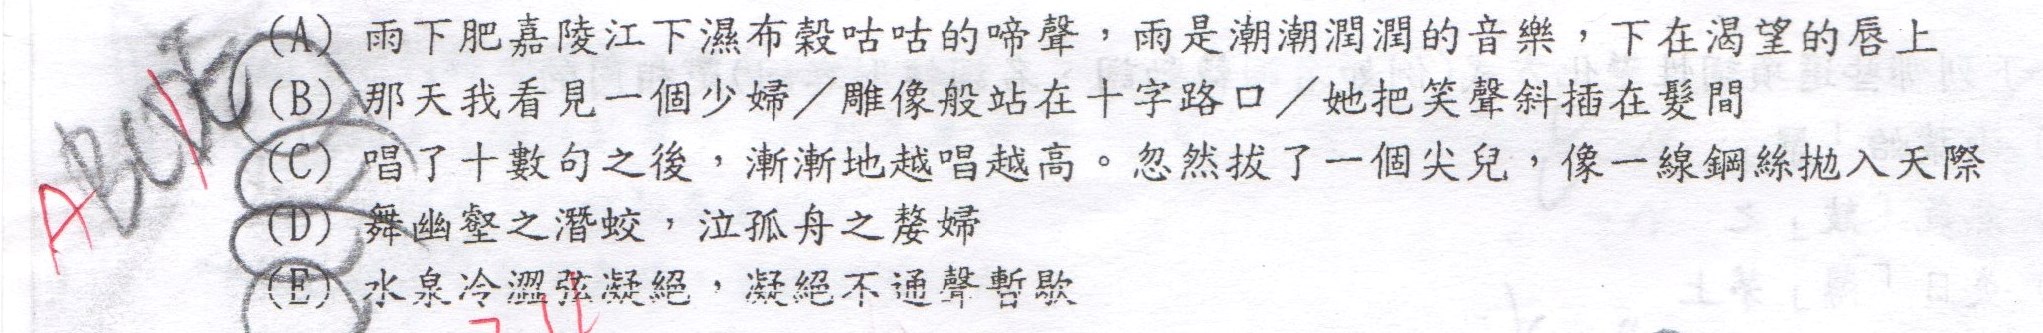 (A) 雨下肥嘉陵江下濕布穀咕咕的啼聲，雨是潮潮潤潤的音樂，下在渴望的唇上
(B) 那天我看見一個少婦／雕像般站在十字路口／她把笑聲斜插在髮間
(C) 唱了十數句之後，漸漸地越唱越高。忽然拔了一個尖兒，像一線鋼絲拋入天際
(D) 舞幽壑之潛蛟，泣孤舟之嫠婦
(E) 水泉冷澀弦凝絕，凝絕不通聲暫歇
ABCDE
A